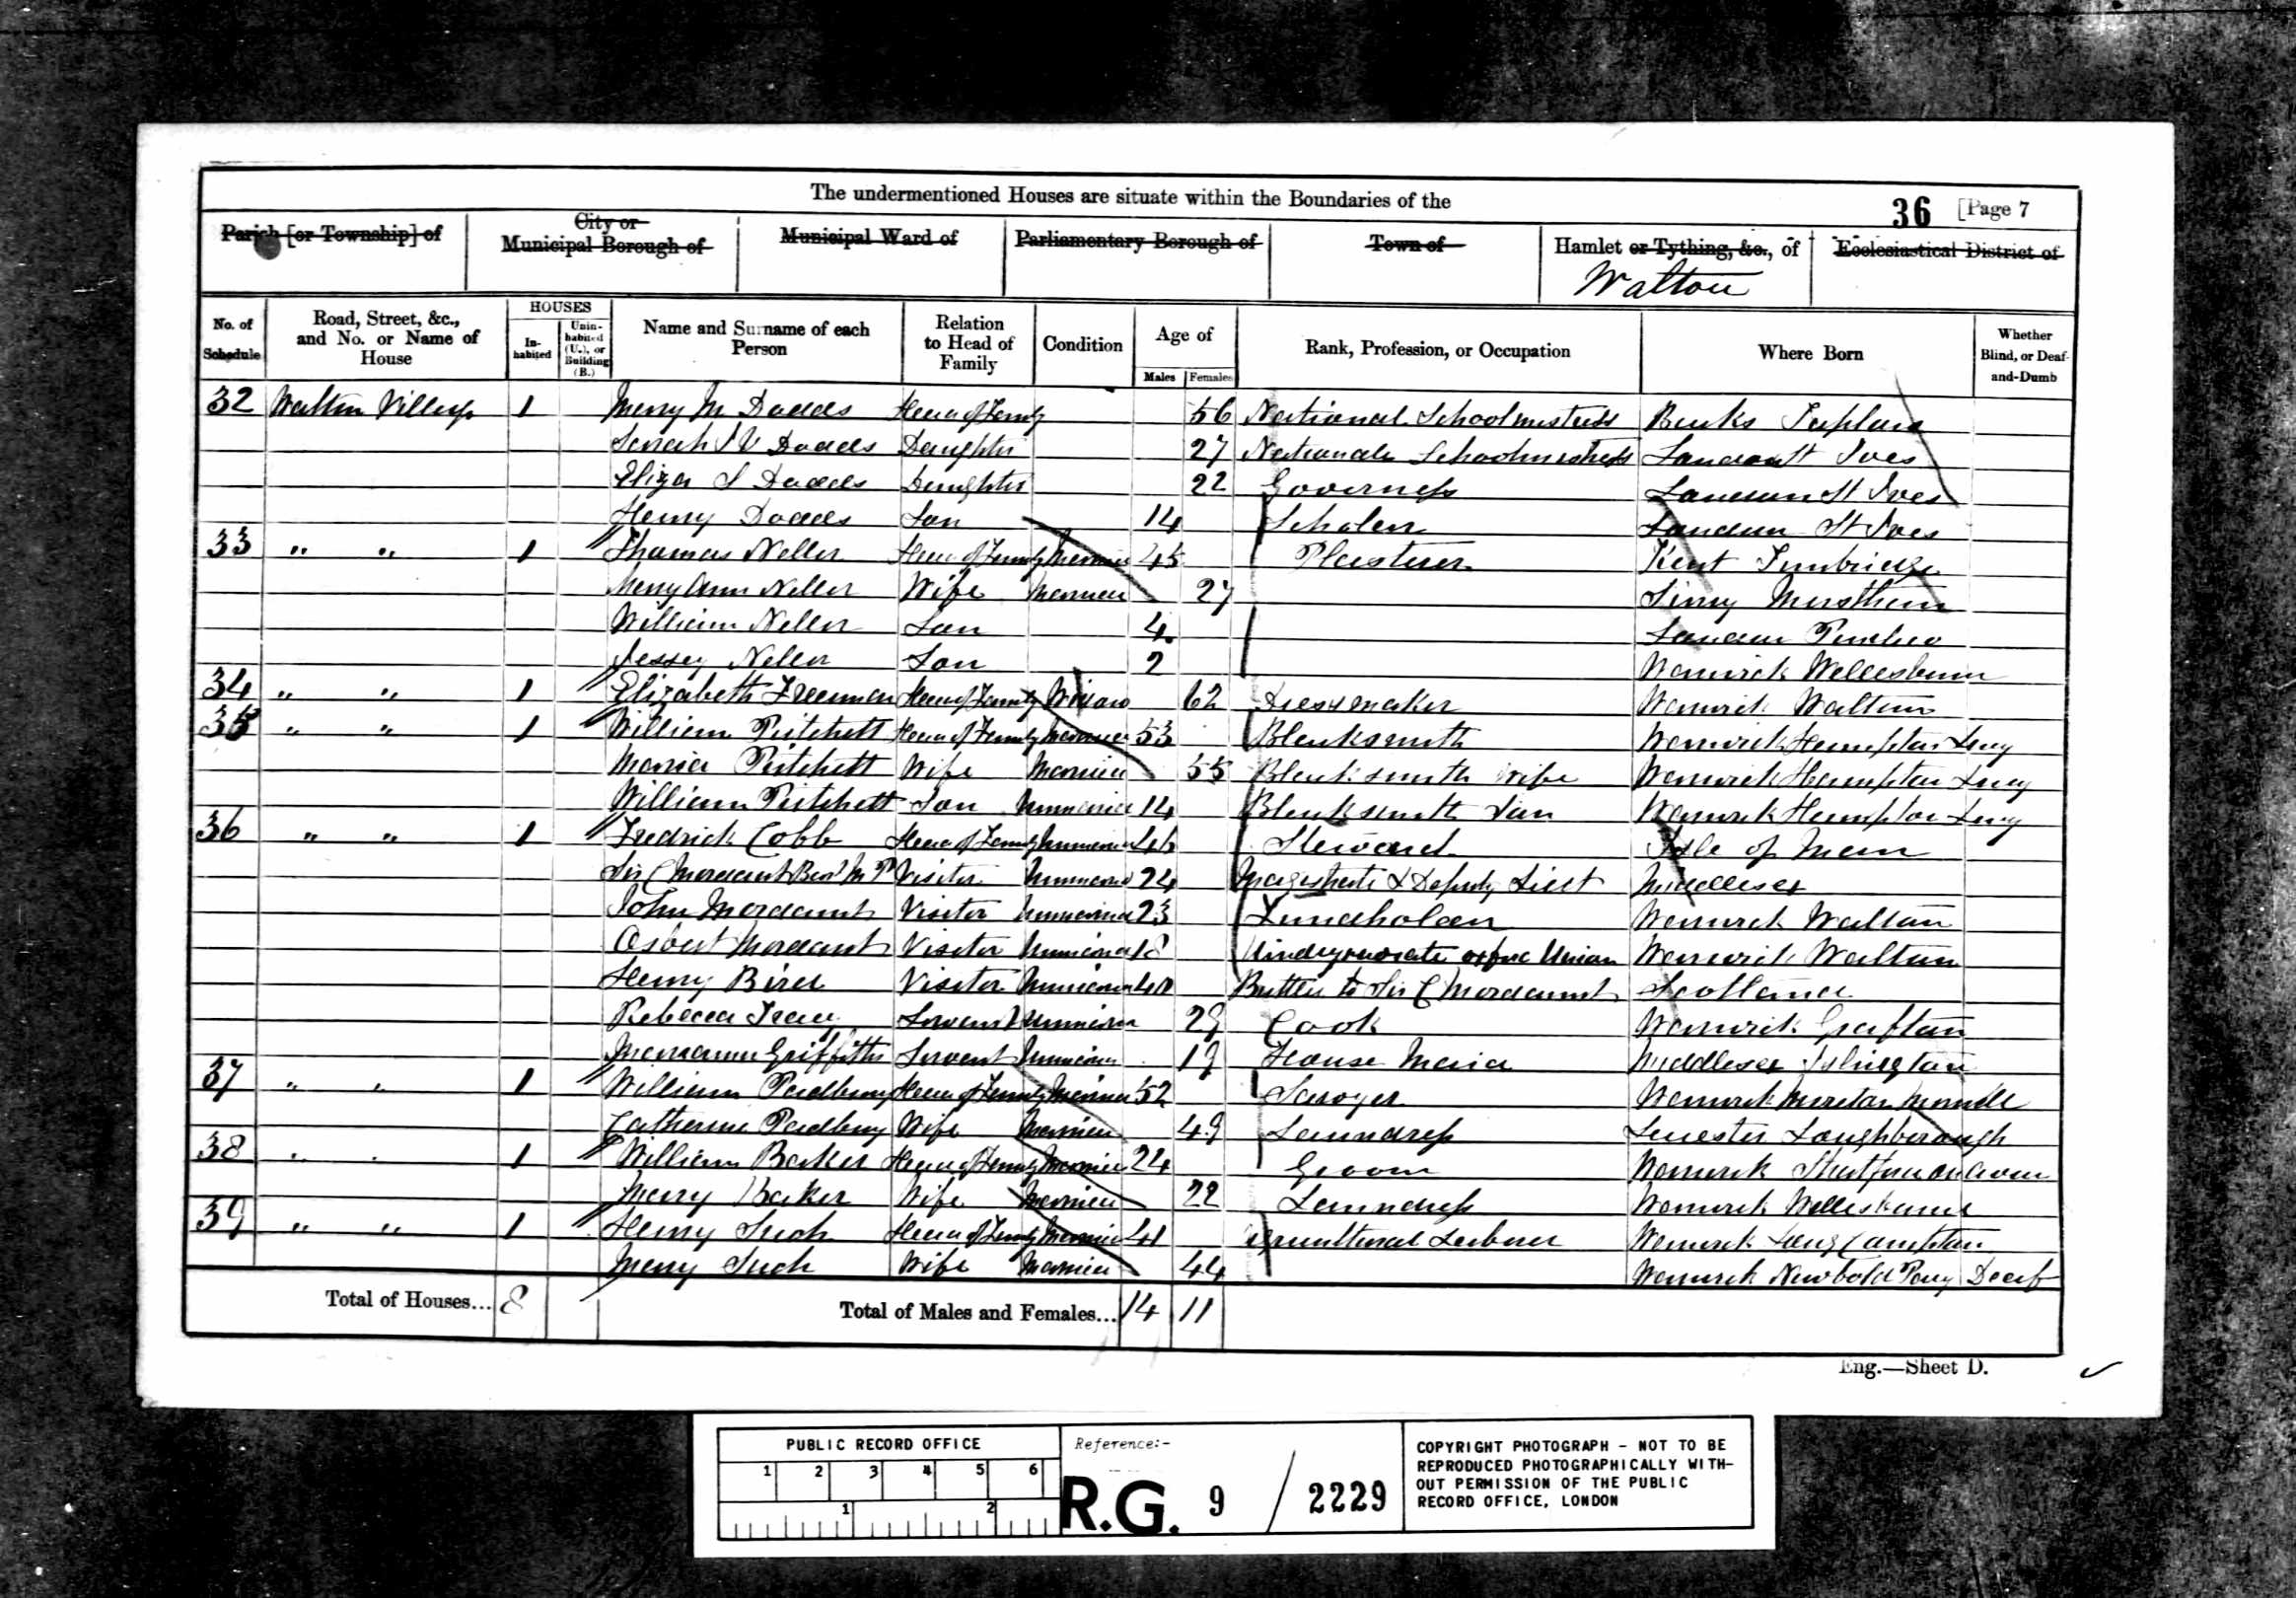 The undermentioned Houses are situate within the Boundaries of the
36 [Page 7
Parish [or Township] of
City or Municipal Borough of
Municipal Ward of
Parliamentary Borough of
Town of
Hamlet or Tything, &c., of
Walton
Ecclesiastical District of
No. of Schedule
Road, Street, &c., and No. or Name of House
HOUSES
In-habited
Unin-habited (U.), or Building (B.)
Name and Surname of each Person
Relation to Head of Family
Condition
Age of
Males
Females
Rank, Profession, or Occupation
Where Born
Whether Blind, or Deaf-and-Dumb
32 Walton Village 1 Mary M Dodds Head of Family 56 National Schoolmistress Bucks
Sarah Dodds Daughter 27 National Schoolmistress London St Ives
Eliza S Dodds Daughter 22 Governess London St Ives
Henry Dodds Son 14 Scholar London St Ives
33 " " 1 Thomas Neller Head of Family Married 45 Plasterer Kent Tunbridge
Mary Ann Neller Wife Married 27 Surry Merstham
William Neller Son 4 London Pimlico
Jessey Neller Son 2 Warwick Wellesburn
34 " " 1 Elizabeth Freeman Head of Family Widow 62 Dressmaker Warwick Walton
35 " " 1 William Pritchett Head of Family Married 53 Blacksmith Warwick Hampton Lucy
Maria Pritchett Wife Married 55 Blacksmith Wife Warwick Hampton Lucy
William Pritchett Son Unmarried 14 Blacksmith Son Warwick Hampton Lucy
36 " " 1 Fredrick Cobb Head of Family Unmarried 46 Steward Isle of Man
Sir C Mordaunt Bart M P Visitor Unmarried 24 Magistrate & Deputy Lieut Middlesex
John Mordaunt Visitor Unmarried 23 Landholder Warwick Walton
Osbert Mordaunt Visitor Unmarried 18 Undergraduate Warwick Walton
Henry Bird Visitor Unmarried Butler to Sir C Mordaunt Scotland
Rebecca Servant Unmarried 29 Cook Warwick Grafton
Maryanne Griffiths Servant Unmarried 19 House Maid Middlesex Islington
37 " " 1 William Padbury Head of Family Married 52 Sawyer Warwick Moreton Morrell
Catherine Padbury Wife Married 49 Laundress Leicester Loughborough
38 " " 1 William Barker Head of Family Married 24 Groom Warwick Stratford on Avon
Mary Barker Wife Married 22 Laundress Warwick
39 " " 1 Henry Such Head of Family Married 41 Agricultural Labourer Warwick Long Compton
Mary Such Wife Married 44 Warwick Newbold Pacy Deaf
Total of Houses... 8
Total of Males and Females... 14 11
Eng.—Sheet D.
PUBLIC RECORD OFFICE
1 2 3 4 5 6
1 2
Reference:-
R.G. 9 / 2229
COPYRIGHT PHOTOGRAPH – NOT TO BE
REPRODUCED PHOTOGRAPHICALLY WITH-
OUT PERMISSION OF THE PUBLIC
RECORD OFFICE, LONDON